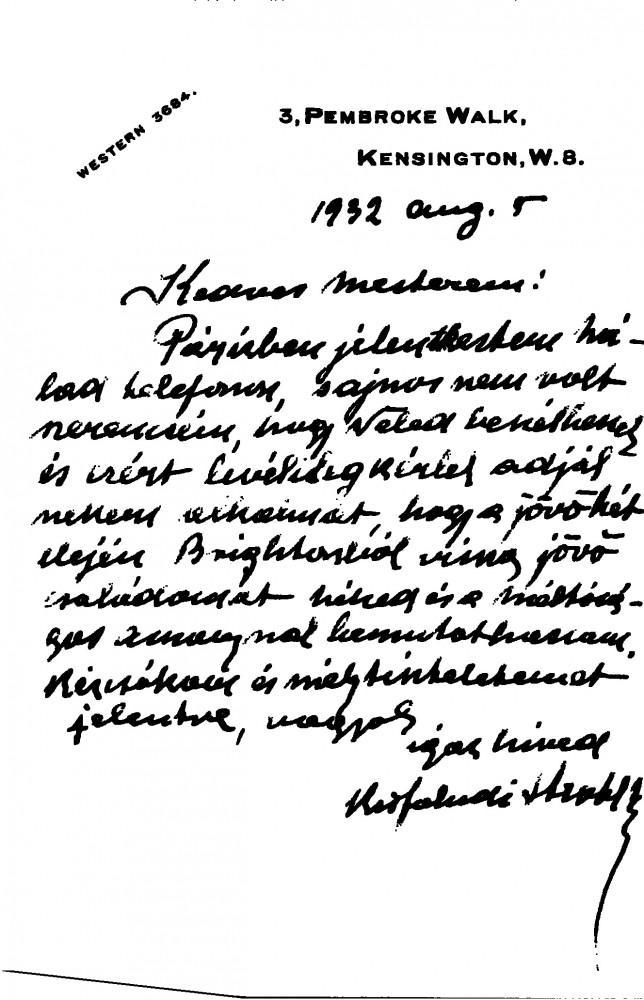 WESTERN 3684.
3, PEMBROKE WALK,
KENSINGTON, W.8.
1932 aug. 5
Kedves Mesterem!
Párisban jelentkeztem ná-
lad telefonon, sajnos nem volt
szerencsém, hogy Veled beszélhessek
és ezért levélileg kérlek adjál
nekem alkalmat, hogy a jövő hét
elején Brightonból vissza jövő
családomat neked és a méltósá-
gos Asszonynál bemutathassam.
Kézcsókom és mély tiszteletemet
jelentve, vagyok
igaz hived
Kisfaludi Strobl Zs